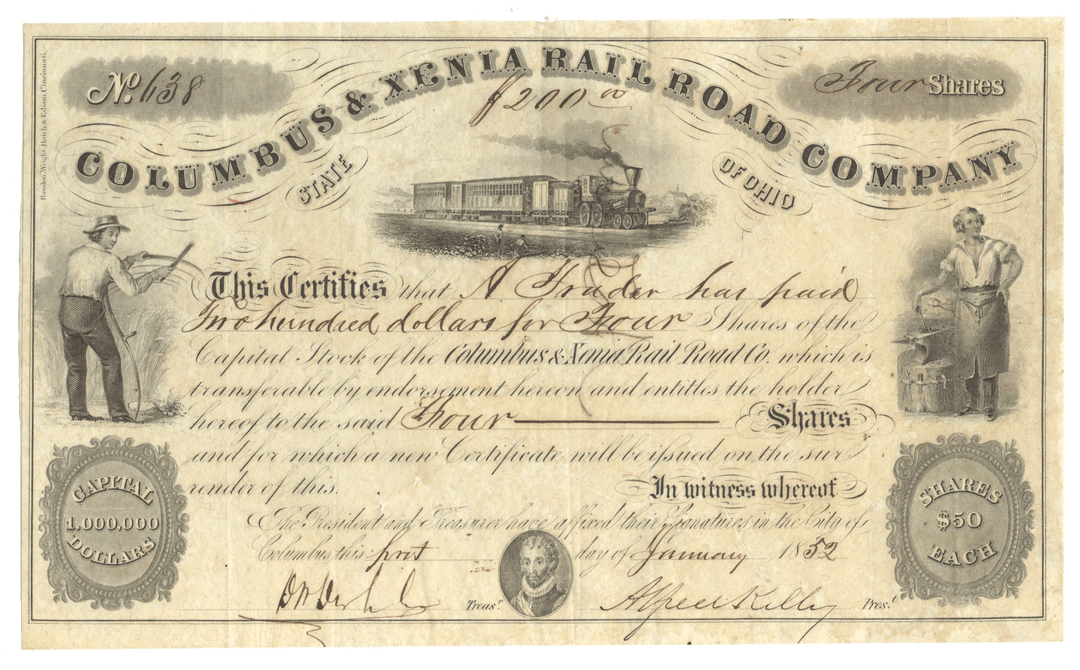 Rawdon, Wright, Hatch & Edson, Cincinnati.
No. 638
COLUMBUS & XENIA RAIL ROAD COMPANY
Four Shares
$200 00
STATE OF OHIO
This Certifies that A. Truder has paid
Two hundred dollars for Four Shares of the
Capital Stock of the Columbus & Xenia Rail Road Co. which is
transferable by endorsement hereon and entitles the holder
hereof to the said Four Shares
and for which a new Certificate will be issued on the sur
render of this.
In witness whereof
The President and Treasurer have affixed their Signatures in the City of
Columbus this first day of January 1852
Treasr.
Alfred Kelley Prest.
CAPITAL
1,000,000
DOLLARS
SHARES
$50
EACH